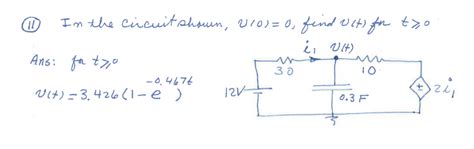 ⑪ In the circuit shown, v(0) = 0, find v(t) for t ≥ 0
Ans: for t ≥ 0
v(t) = 3.426 (1 - e^-0.467t)
i₁ v(t)
3Ω 1Ω
12V 0.3 F + 2i₁